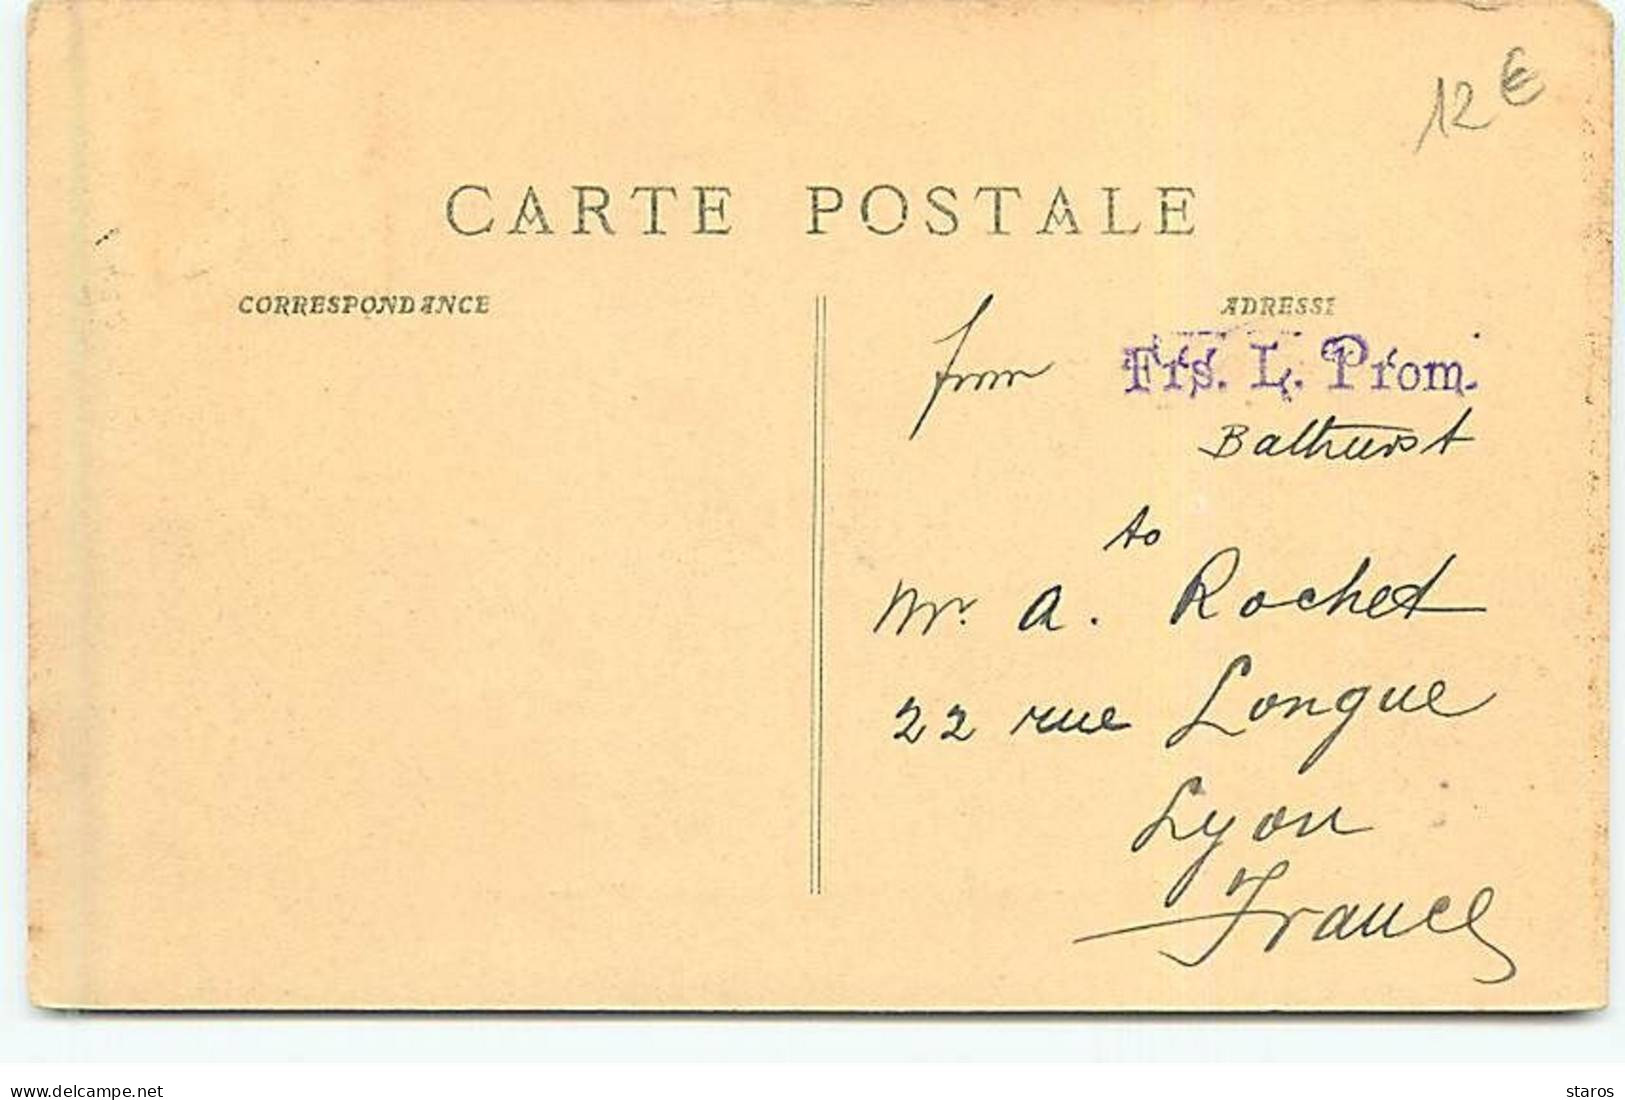 12 €
CARTE POSTALE
CORRESPONDANCE
ADRESSE
from Frs. L. Prom.
Bathurst
to
Mr. A. Rochet
22 rue Longue
Lyon
France
website:delcampe.net
staros